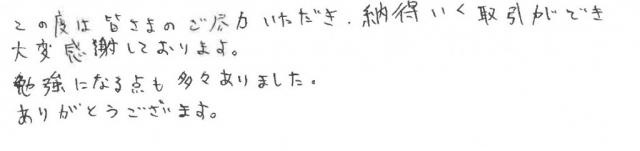 この度は皆さまのご尽力いただき、納得いく取引ができ
大変感謝しております。
勉強になる点も多々ありました。
ありがとうございます。